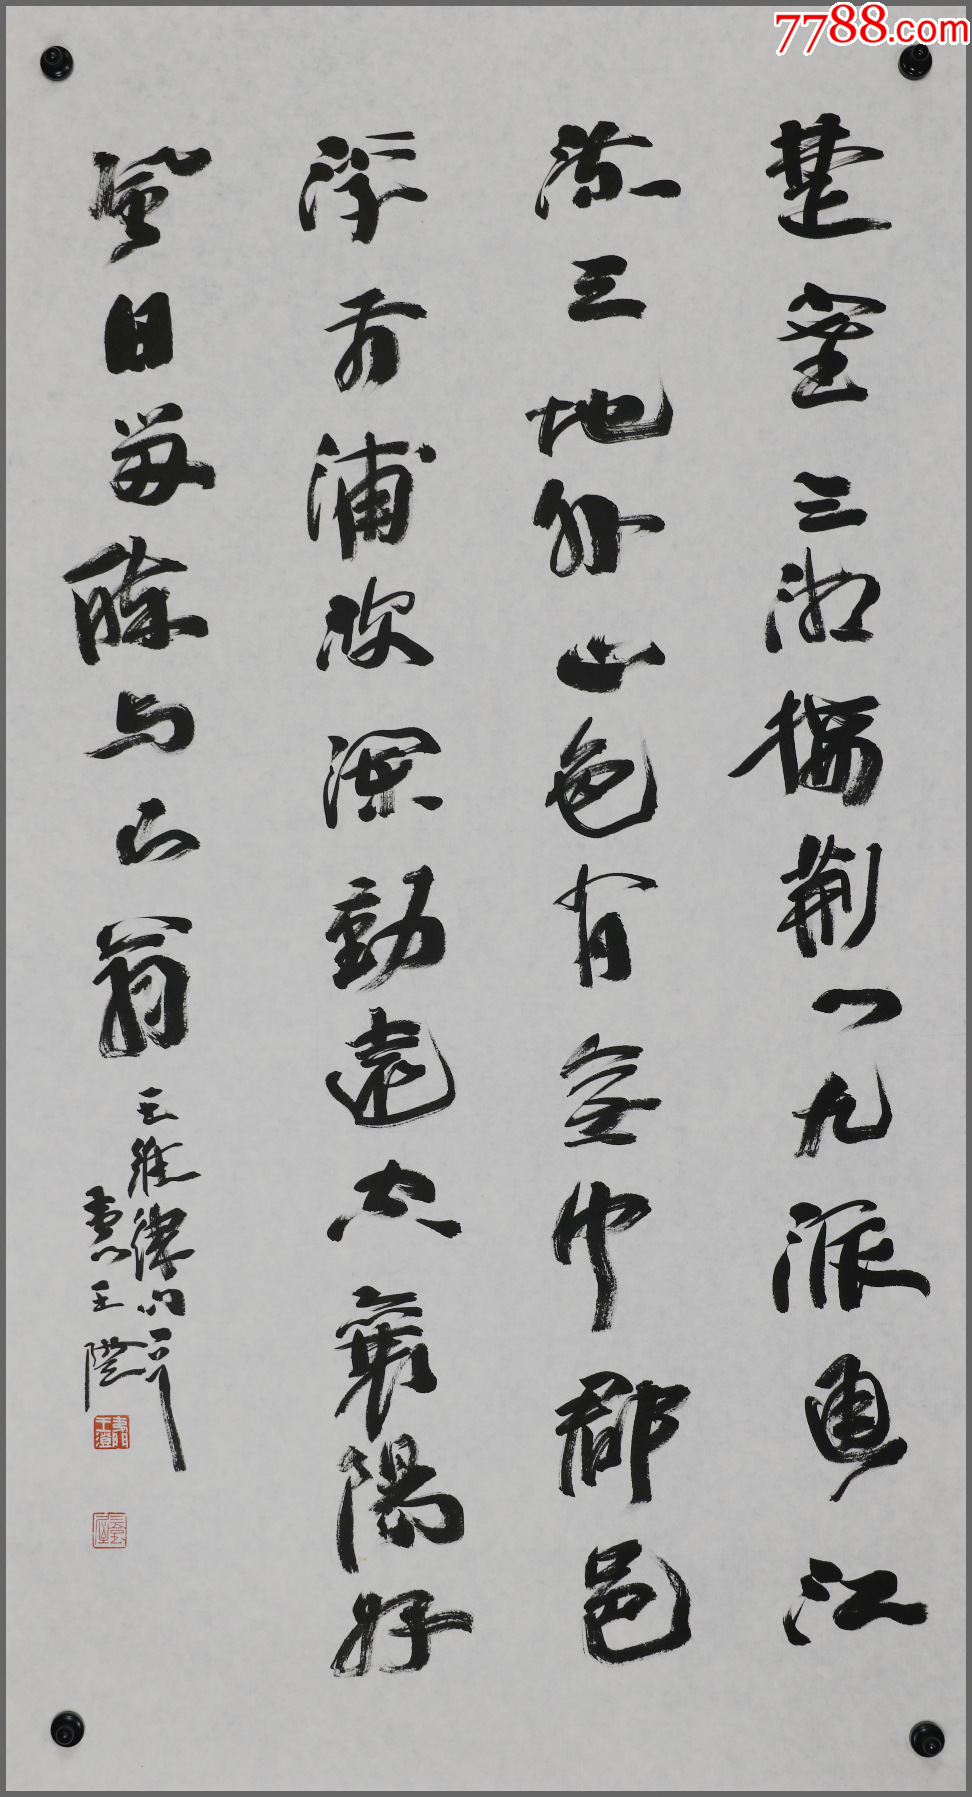 7788.com
楚塞三湘接荊门九派通江
流天地外山色有无中郡邑
浮前浦波澜動遠空襄陽好
風日留醉与山翁
王維律
王澄